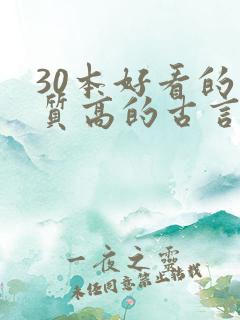 30本好看的
质高的古言
一夜之灵
未经同意禁止转载